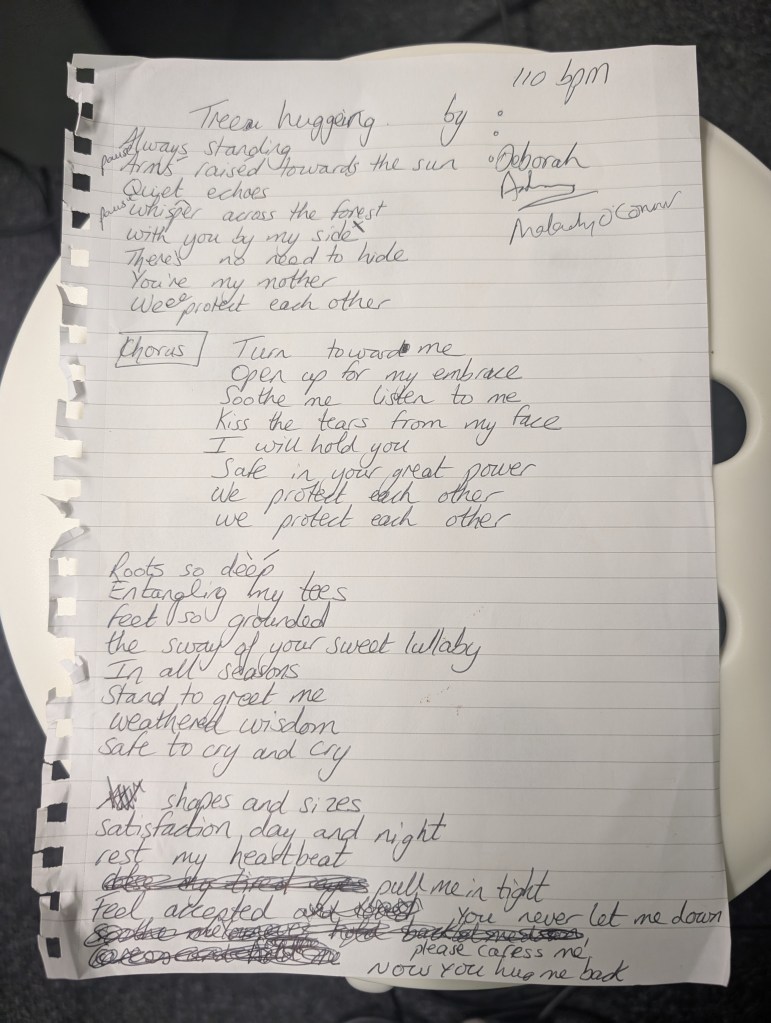 110 bpm
Treea huggeing by :
Always standing
° Deborah
pause Arms raised towards the sun
Quiet echoes
pause whisper across the forest
Malachy O'Connor
with you by my side x
There's no need to hide
You're my mother
Weee protect each other
Chorus Turn toward me
Open up for my embrace
Soothe me listen to me
Kiss the tears from my face
I will hold you
Safe in your great power
We protect each other
we protect each other
Roots so deep
Entangling my toes
feet so grounded
the sway of your sweet lullaby
In all seasons
Stand to greet me
weathered wisdom
safe to cry and cry
shapes and sizes
satisfaction day and night
rest my heartbeat
pull me in tight
Feel accepted you never let me down
please caress me
Now you hug me back